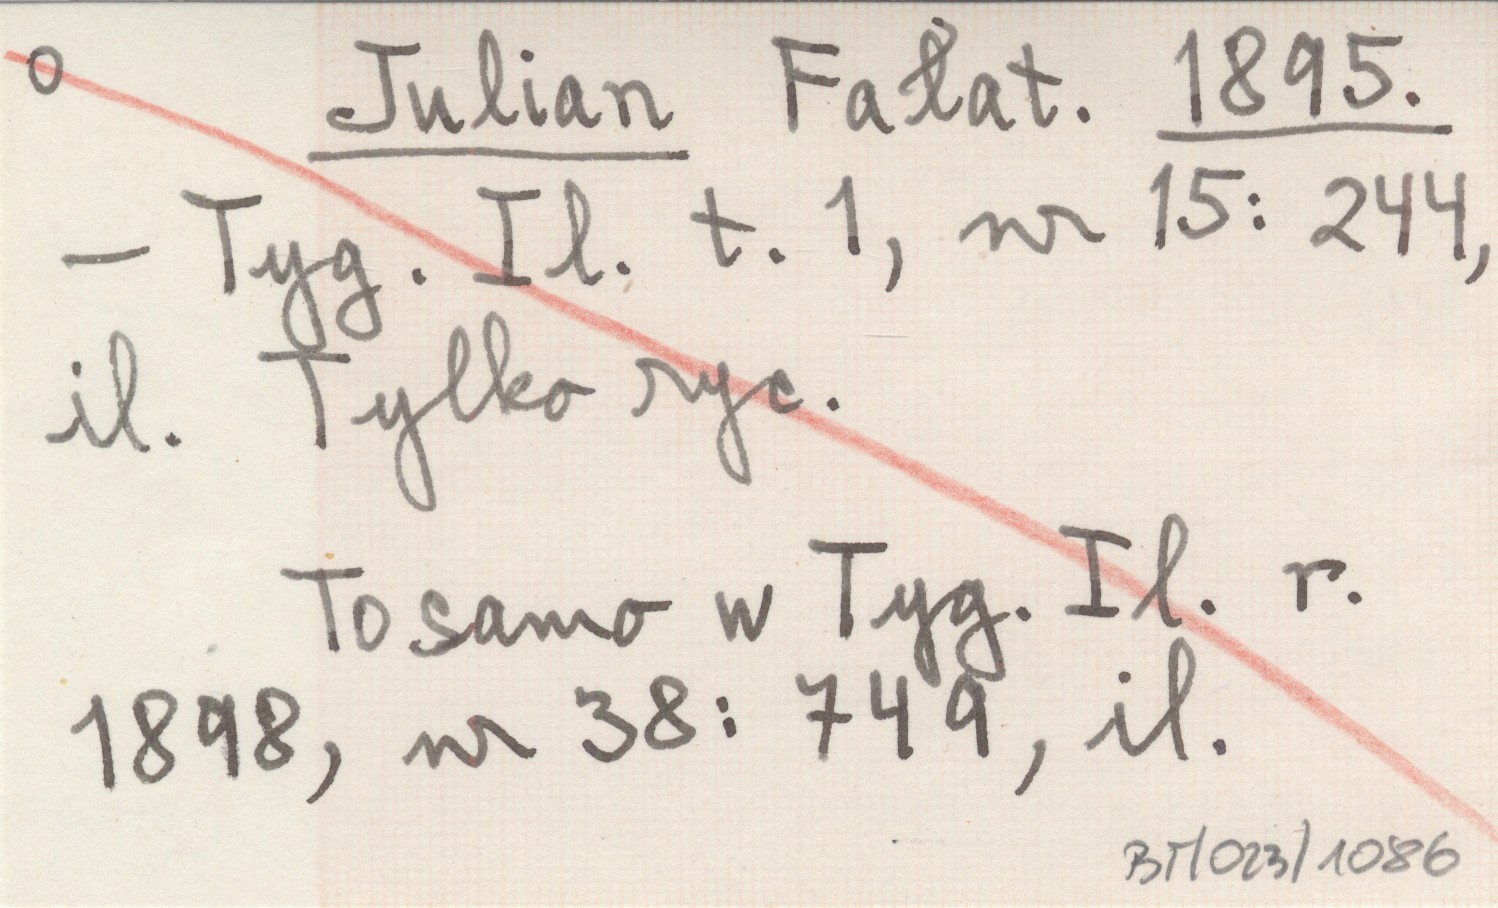 o Julian Fałat. 1895.
– Tyg. Il. t. 1, nr 15: 244,
il. Tylko ryc.
To samo w Tyg. Il. r.
1898, nr 38: 749, il.
BT/023/1086